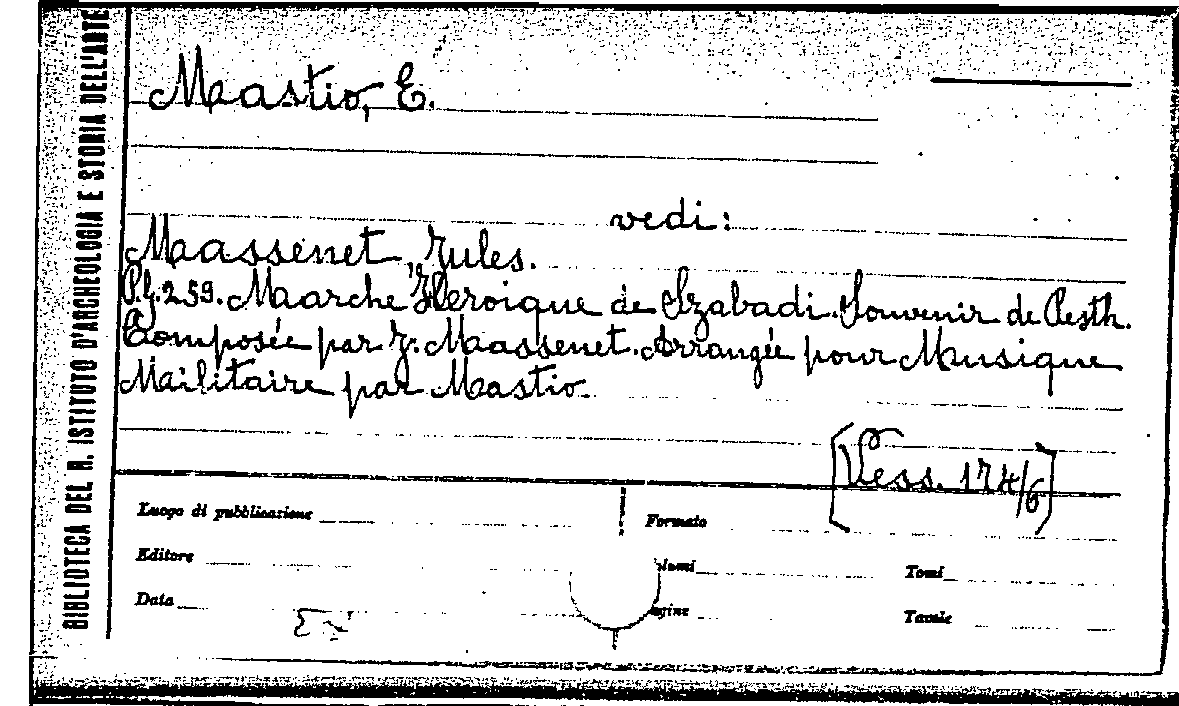 BIBLIOTECA DEL R. ISTITUTO D'ARCHEOLOGIA E STORIA DELL'ARTE
Mastio, E.
vedi:
Massenet, Jules.
P.g. 259. Marche Heroique de Szabadi. Souvenir de Pesth.
Composée par J. Massenet. Arrangée pour Musique
Militaire par Mastio.
[Vess. 174/6]
Luogo di pubblicazione
Formato
Editore
Tomi
Data
Tavole